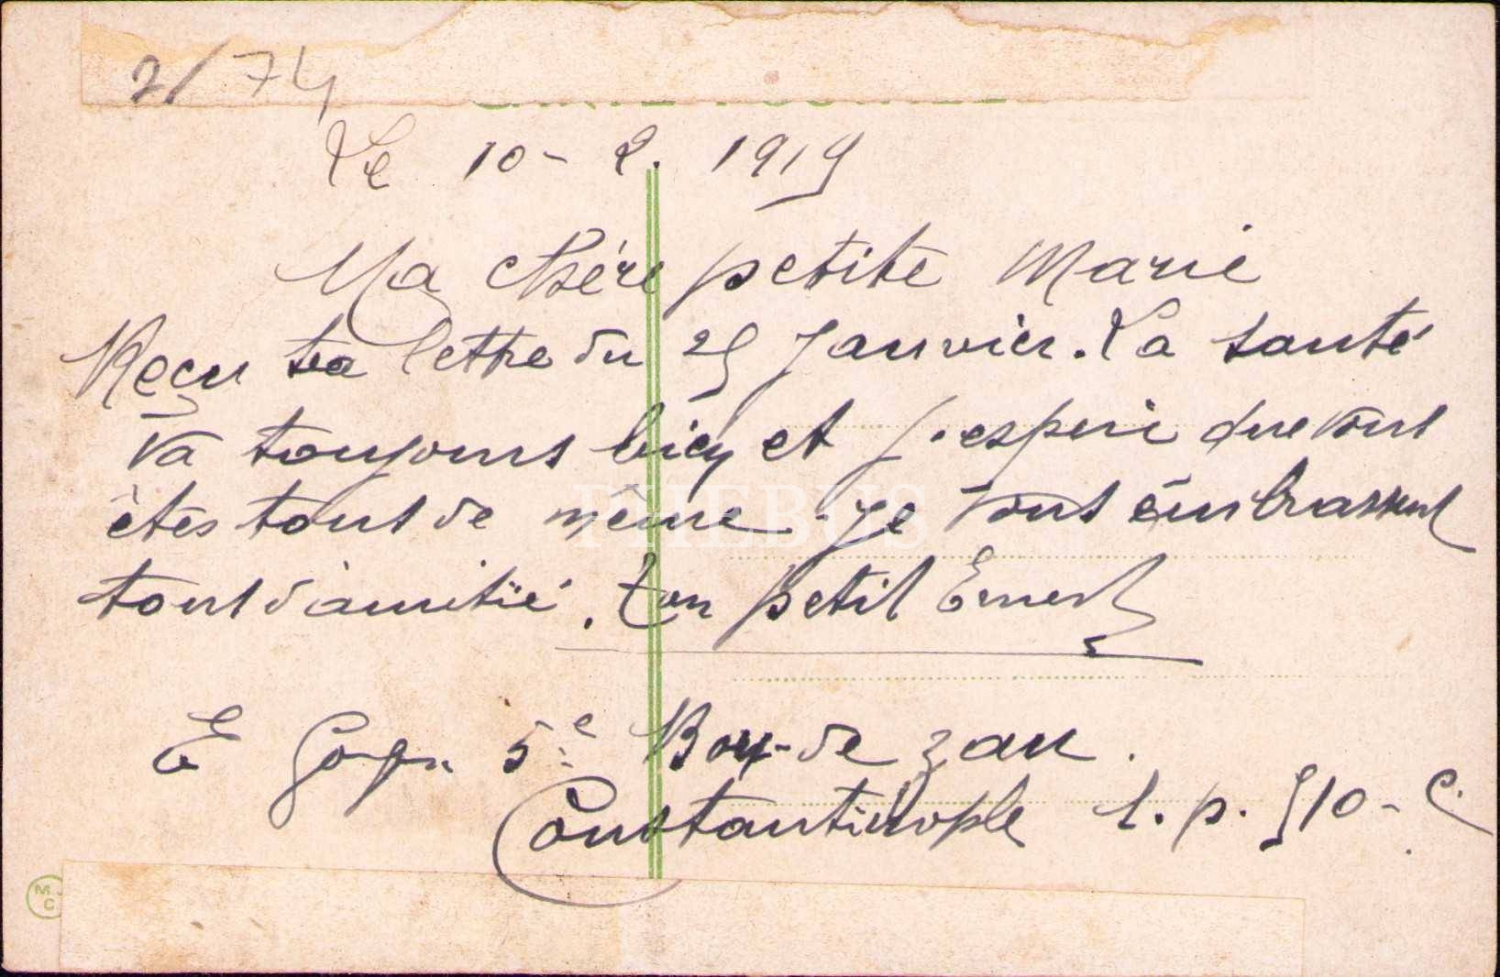 2/74
CARTE POSTALE
Le 10 - 2. 1919
Ma chère petite Marie
Reçu ta lettre du 25 Janvier. La santé
va toujours bien et j'espère que vous
êtes tous de même. Je vous embrasse
tous d'amitié. Ton petit Ernest
E 5e Bon-de zau.
Constantinople S. p. 510 - C.
PHEBUS
M.J.
C